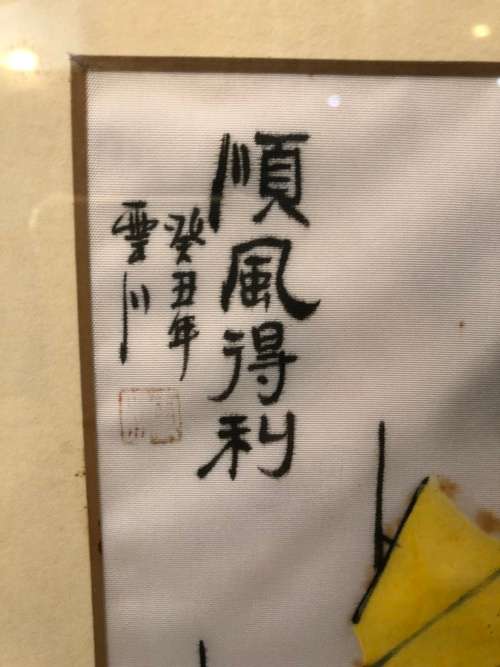 順風得利
癸丑年
雲川